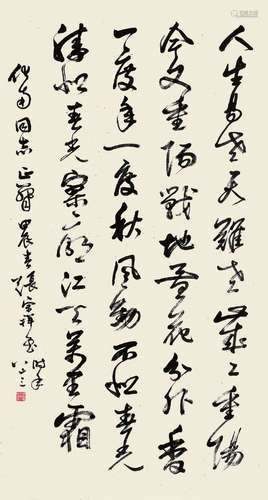 人生易老天難老歲〻重陽
今又重陽戰地黃花分外香
一年一度秋風勁不似春光
勝似春光寥廓江天萬里霜
同志正 甲辰春張宗祥書時年
八十三